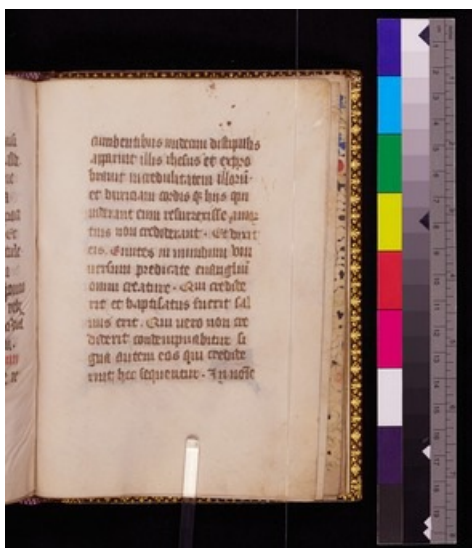 cumbentibus undecim discipulis
aparuit illis ihesus et expro
bravit incredulitatem illorū
et duriciam cordis qͥ hijs qui
viderant eum resurexisse
tuis non crediderant. Et dixit
eis. Euntes in mundum vni
uersum predicate euangliū
omni creature. Qui credide
rit et baptisatus fuerit sal
uus erit. Qui vero non cre
diderit condempnabitur si
gna autem eos qui credide
rint hec sequentur. In noīe